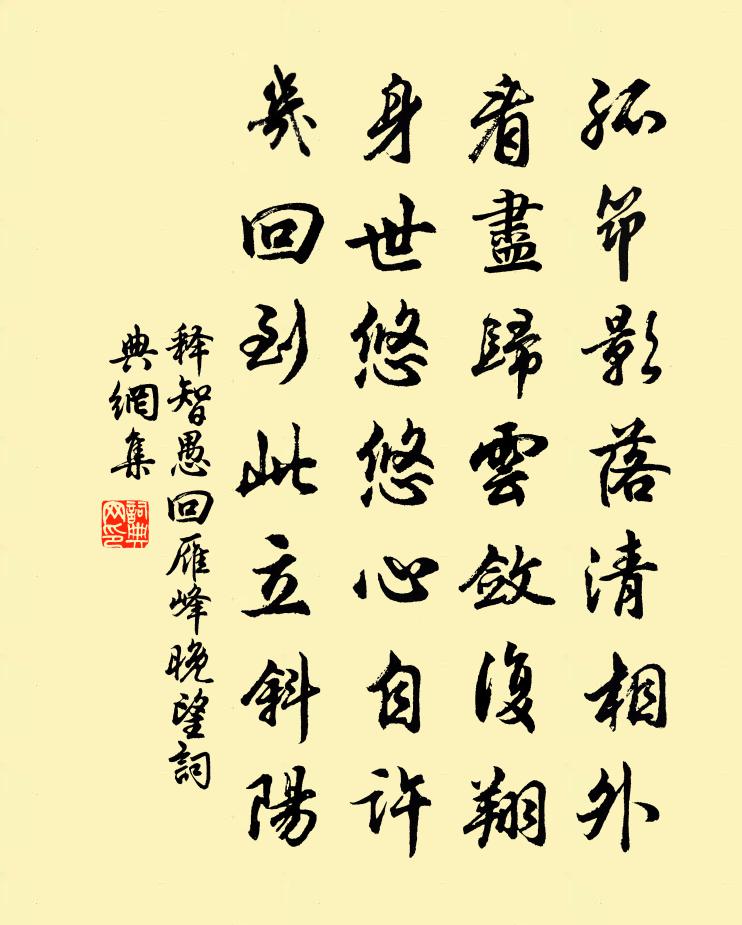 孤笻影落清相外
看盡歸雲斂復翔
身世悠悠心自許
幾回到此立斜陽
释智愚回雁峰晚望詞
典網集
詞典
网印